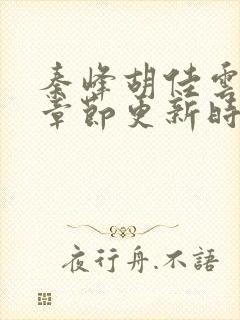 秦峰胡佳雲
章節更新時
夜行舟.不語